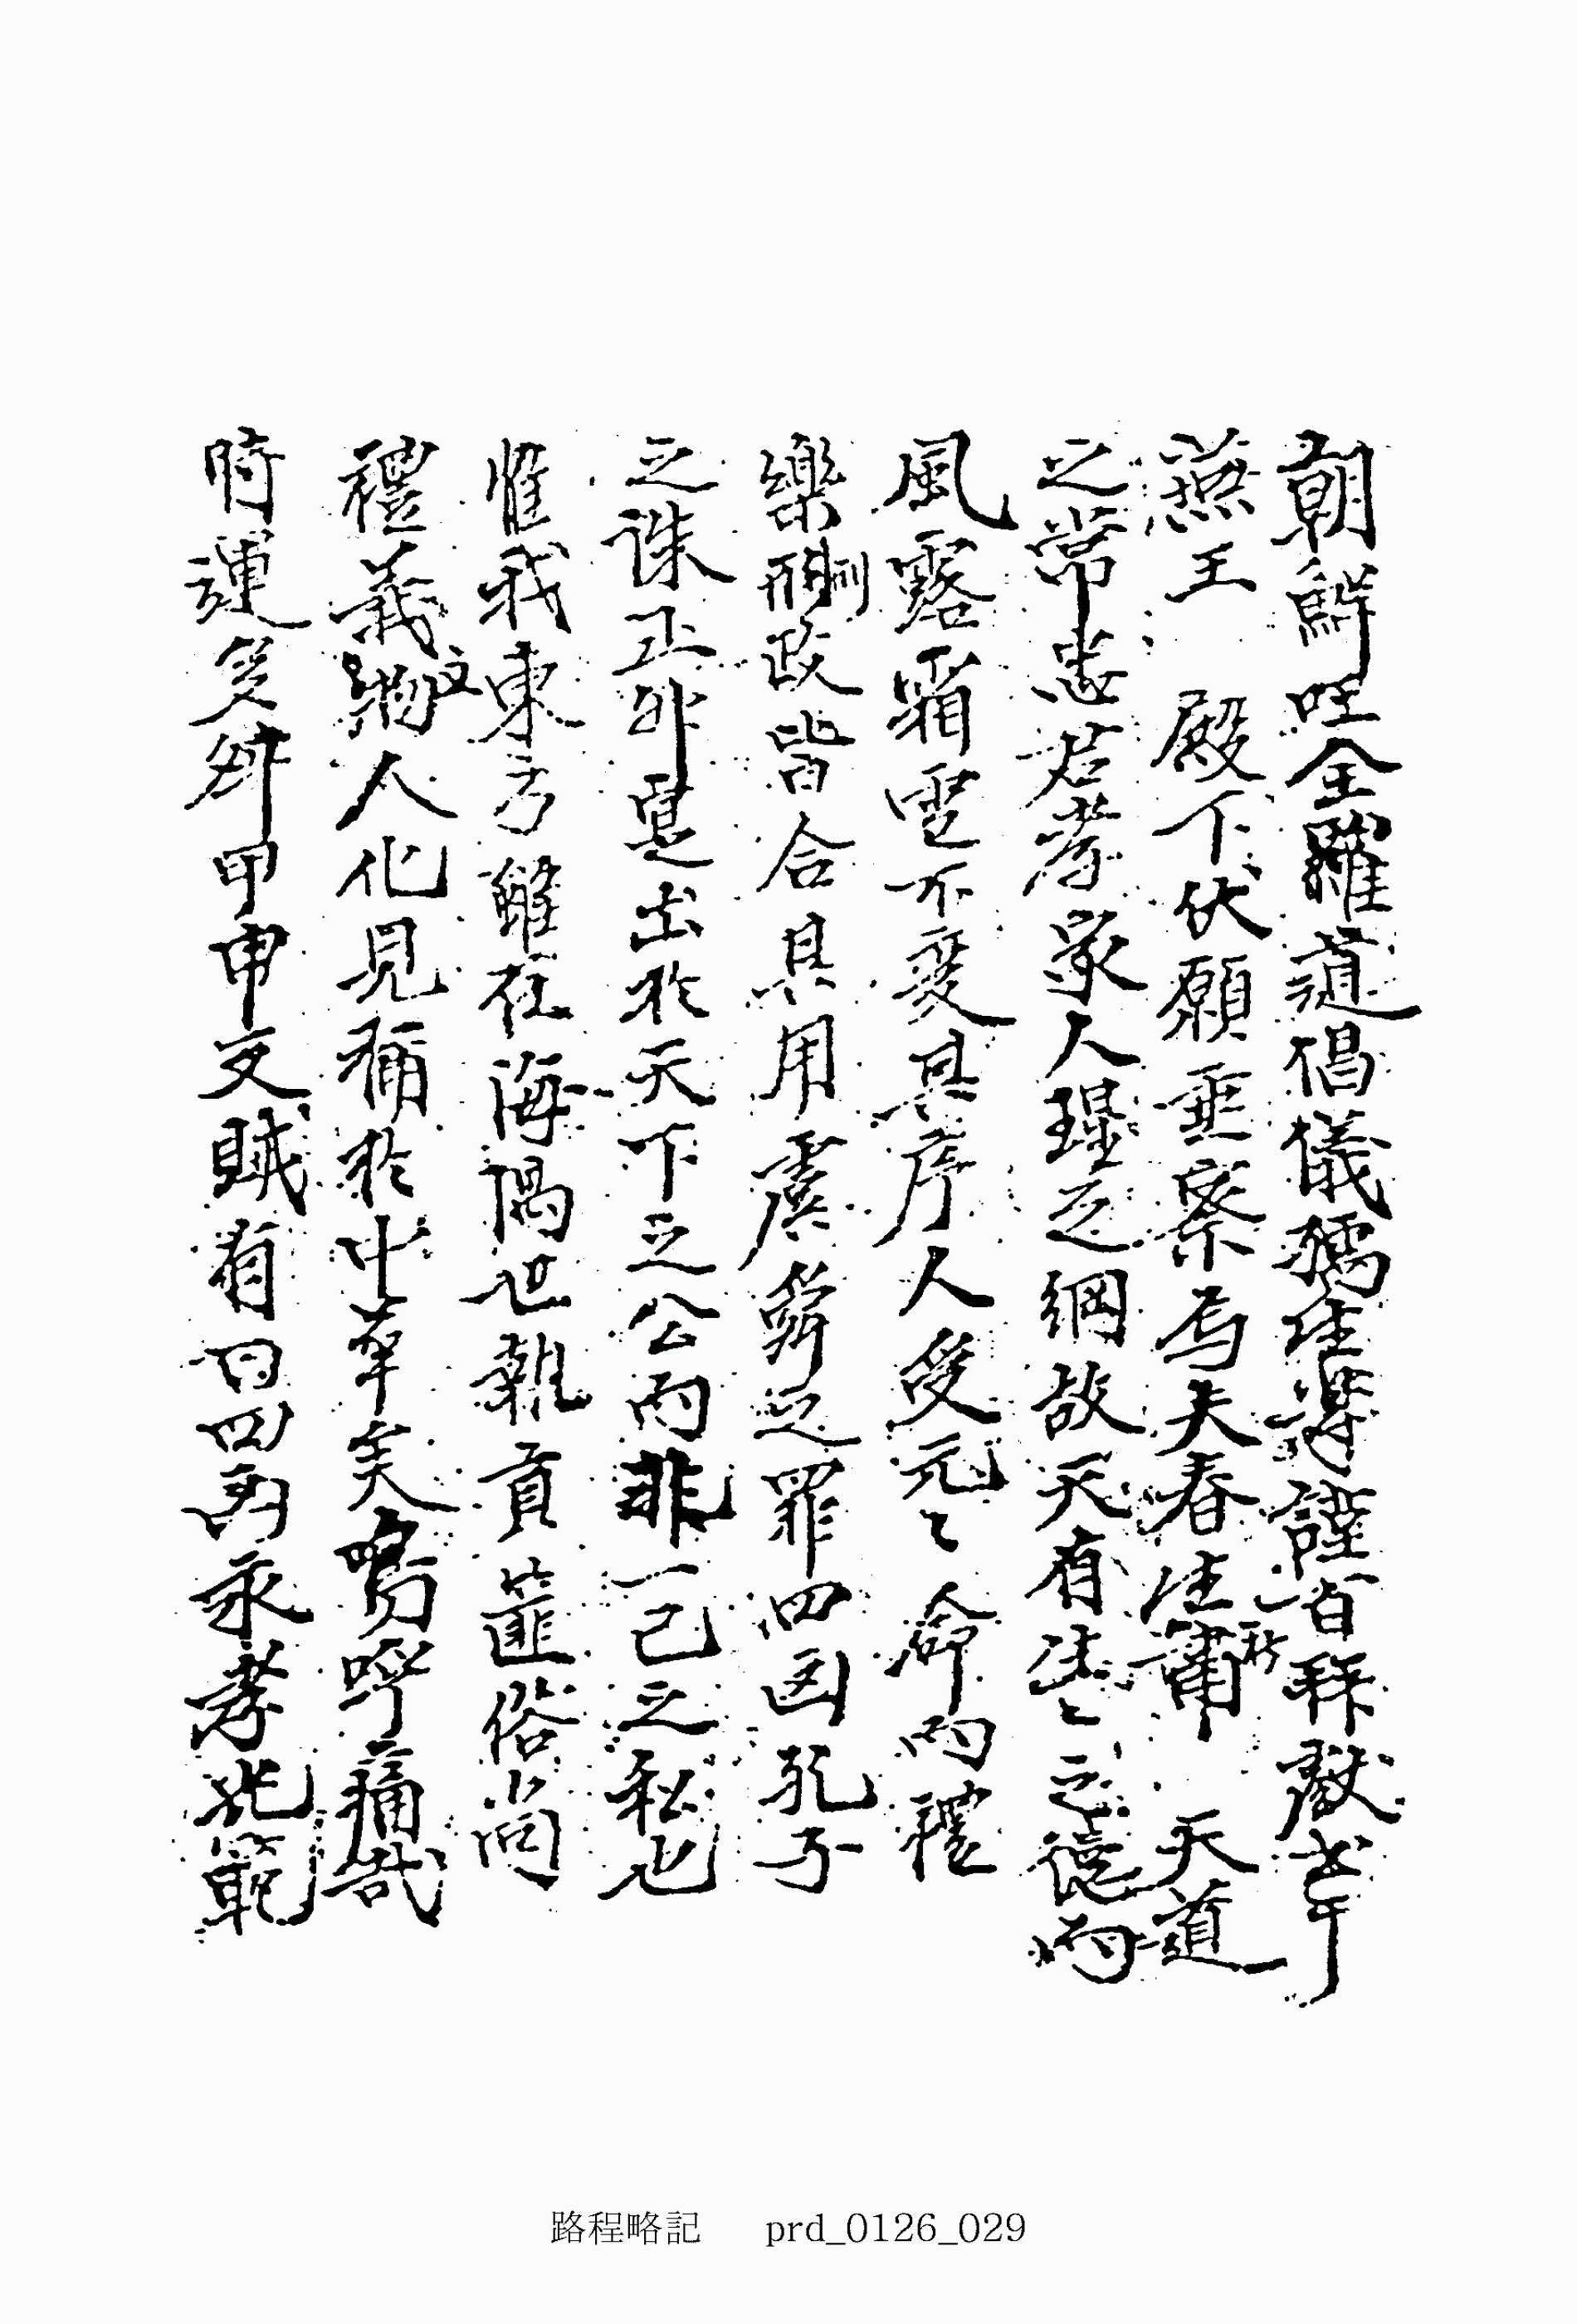 朝鮮国全羅道倡儀孺生等謹百拜獻书于
燕王 殿下伏願垂察焉夫春生秋肅 天道
之常忠君孝家人理之綱故天有生々之德而
風露霜雪不變其序人受元々命而禮
樂刑政皆合其用虞舜之罪四凶孔子
之誅正卯寔出於天下之公而非一己之私也
惟我東方雖在海隅世執貢篚俗尚
禮義文物人化見稱於中華矣嗚呼痛哉
時運矣舛甲申文賊有曰四凶永孝泳範
路程略記 prd_0126_029